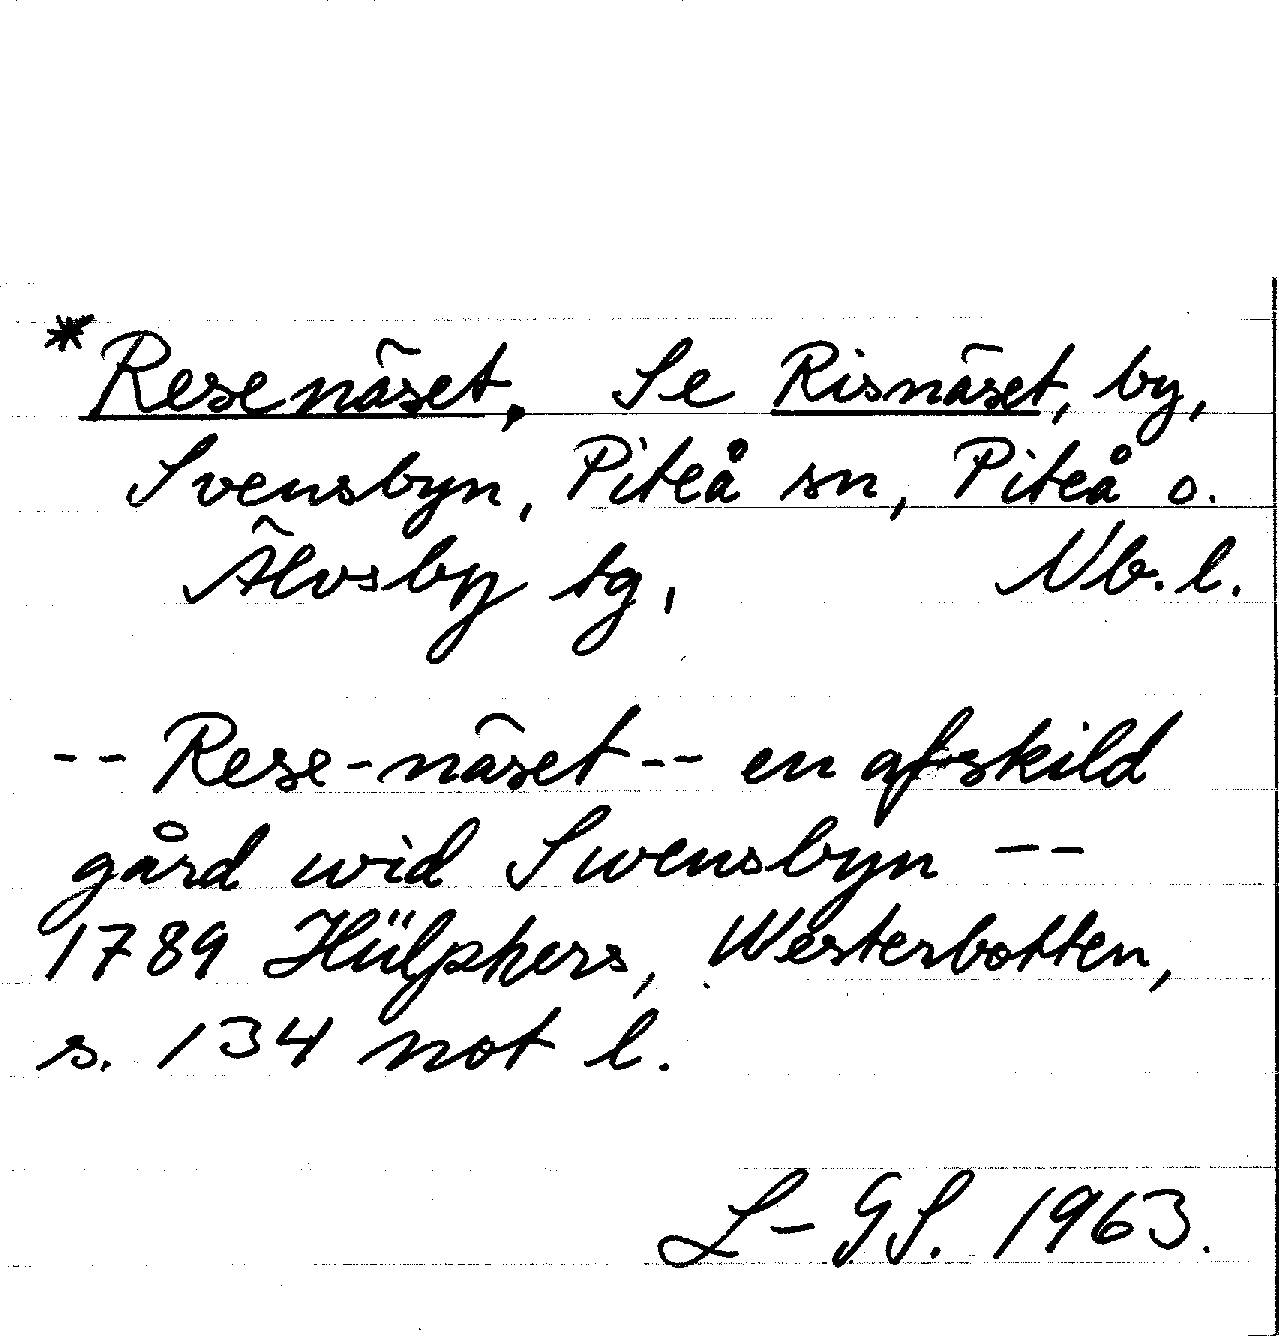 * Resenäset. Se Risnäset, by,
Svensbyn, Piteå sn, Piteå o.
Älvsby tg, Nb. l.
-- Rese-näset -- en afskild
gård wid Swensbyn --
1789 Hülphers, Westerbotten,
s. 134 not l.
L-GS. 1963.